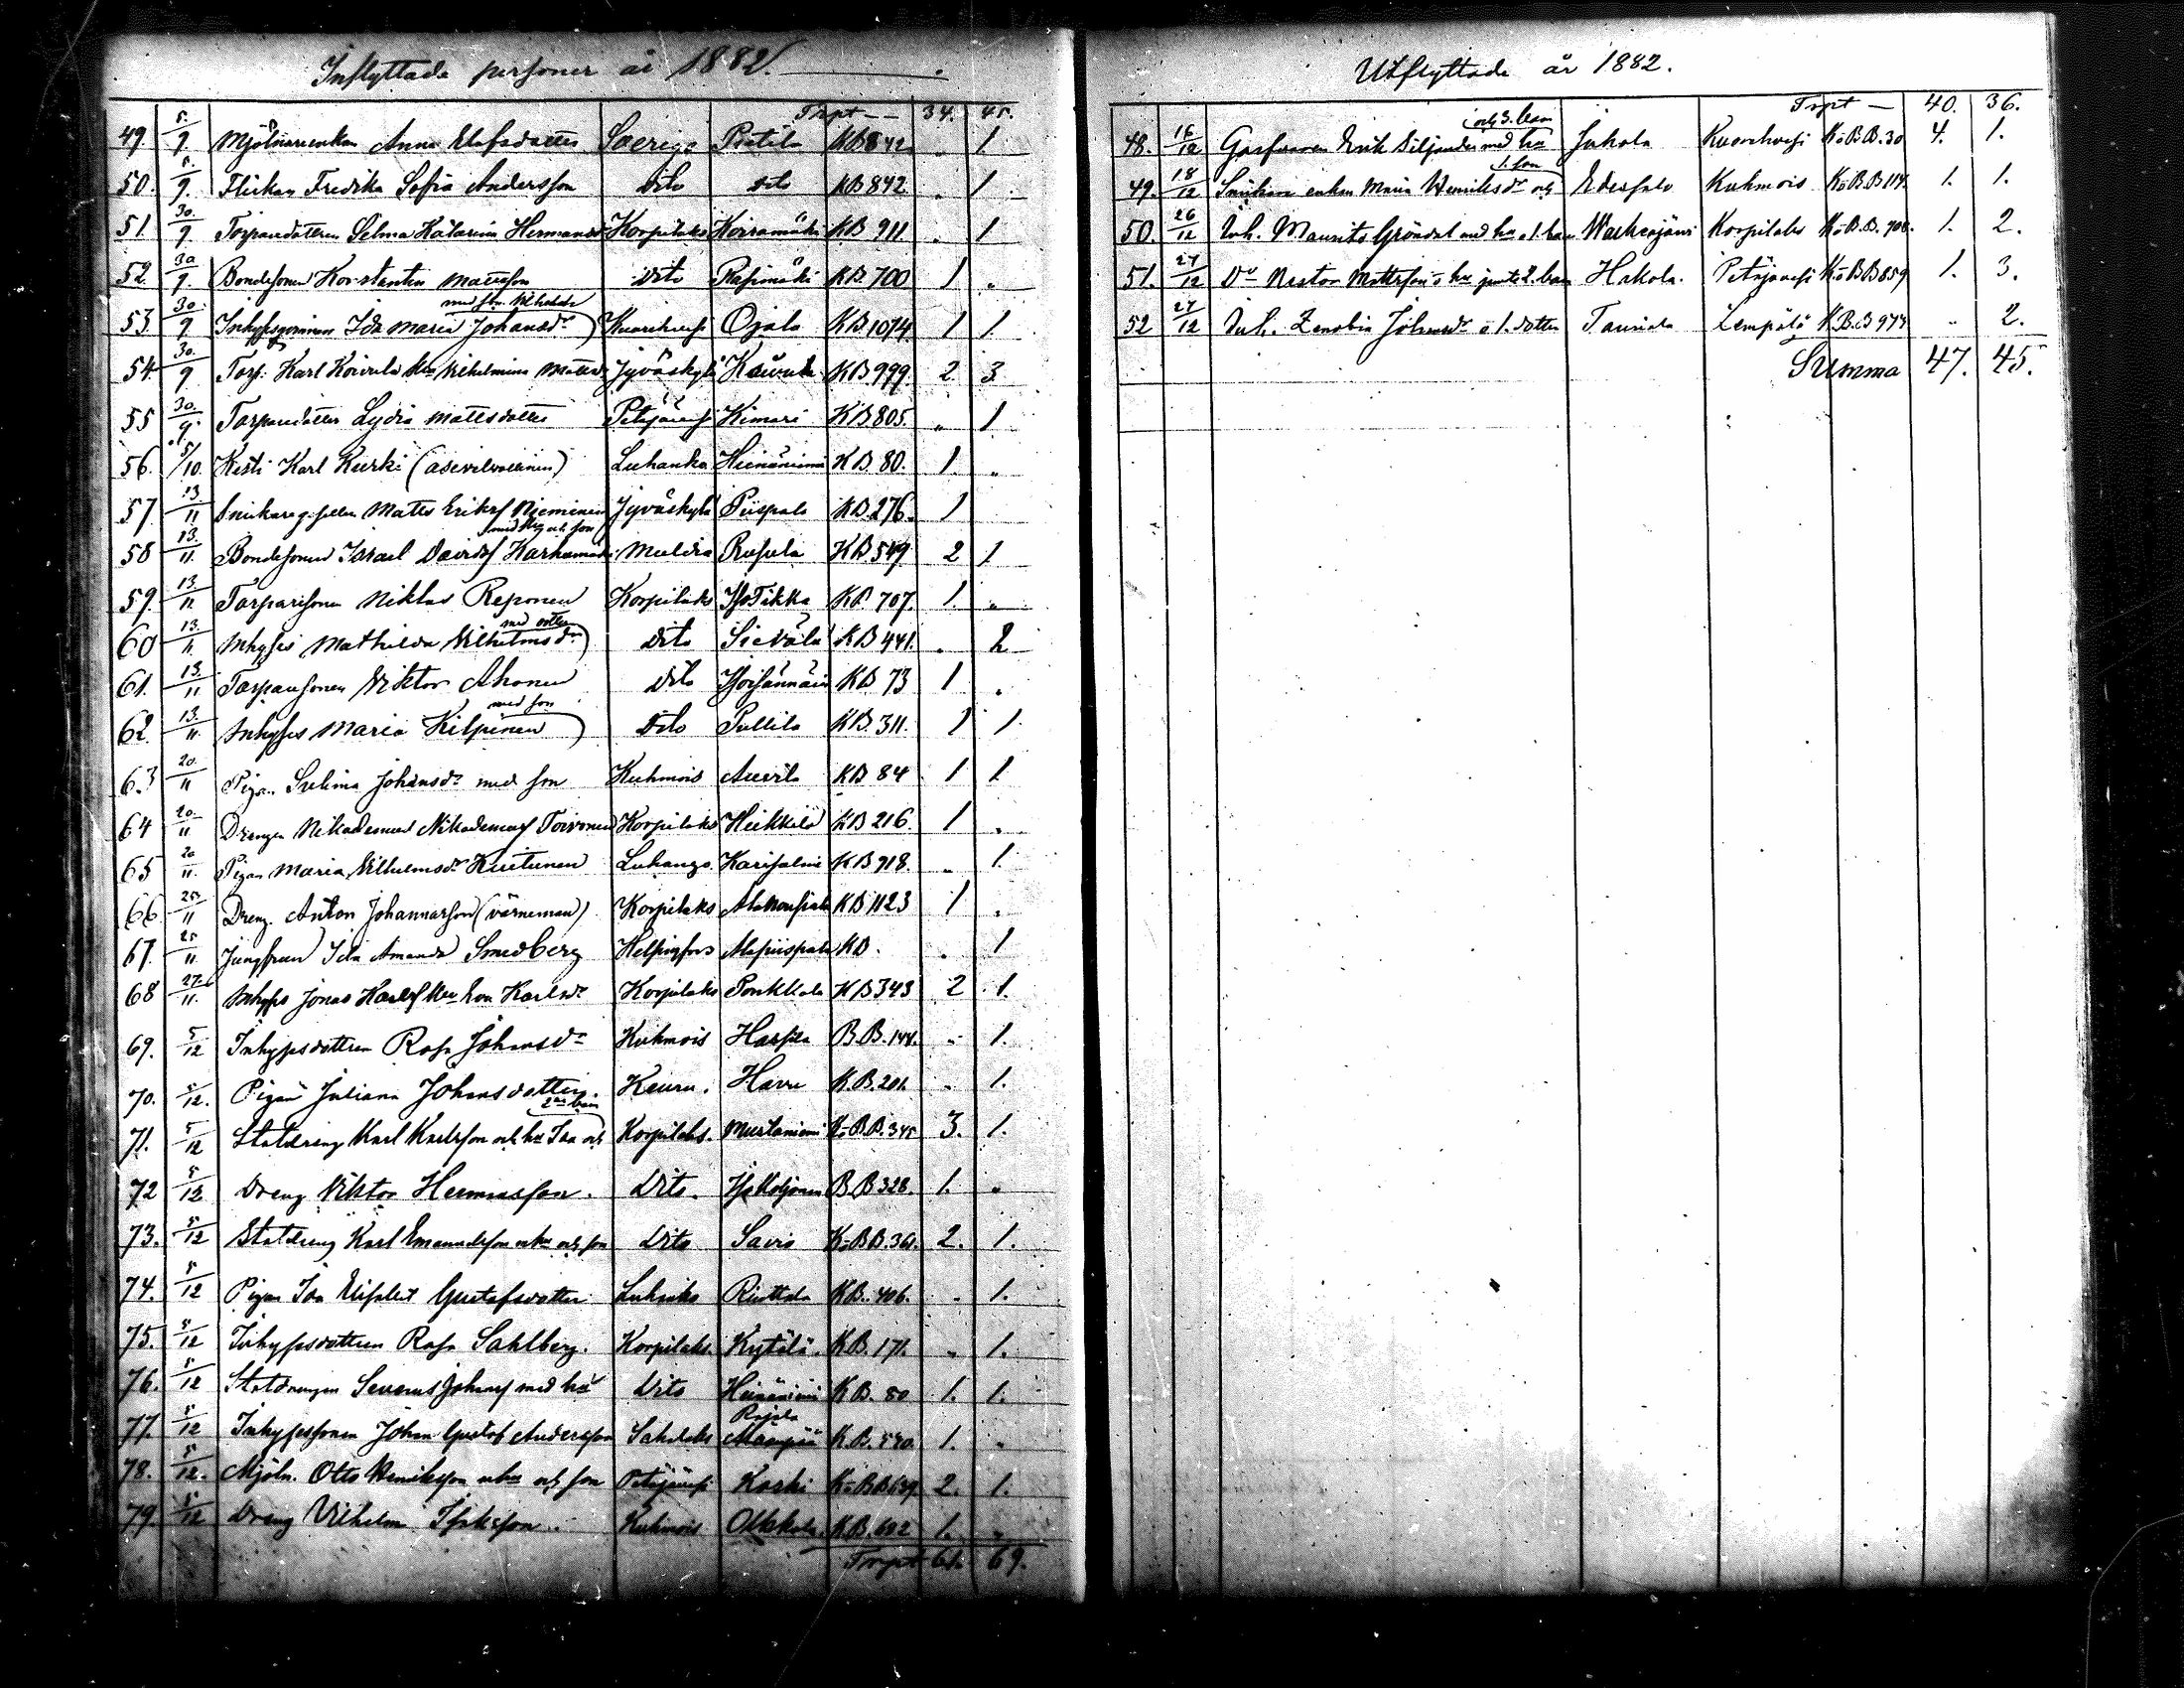 Inflyttade personer år 1882.
Trpt — 34. 45.
49. 5/9. Mjölnarenkan Anna Elofsdotter Sverige Pietilä KB 842 „ 1.
50. 5/9. Flickan Fredrika Sofia Andersson dito dito KB 842. „ 1
51. 30/9. Torparedottern Selma Katarina Hermansdr Korpilaks Koiramäki KB 911. „ 1
52. 30/9. Bondesonen Konstantin Mattsson dito Rasinmäki KB. 700 1 „
53. 30/9 Inhysesqvinnan Ida Maria Johansdr Kuorehvesi Ojala KB. 1074. 1 1.
54. 30/9 Torp. Karl Koivula hu Vilhelmina Mattsdr Jyväskylä Koivula KB 999. 2. 3.
55 30/9. Torparedottern Lydia Mattsdotter Petäjävesi Kimari KB 805. „ 1
56. 5/10. Kesti Karl Kurki (asevelvollinen) Luhanka Hienäniemi KB 80. 1. „
57 13/11 Snickaregesellen Matts Eriksf Nieminen Jyväskylä Piispala KB. 276. 1
med hu och son
58 13/11. Bondesonen Israel Davidsf Karhumäki Muldia Rusula KB 549 2 1
59. 13/11. Torparesonen Niklas Reponen Korpilaks IsoTikka KB 707. 1. „
med dotter
60 13/11. Inhyses Mathilda Vilhelmsdr dito Sievälä KB 441. „ 2
61. 13/11 Torparesonen Viktor Ahonen dito KB 73 1 „
med son
62. 13/11. Inhyses Maria Kilpinen dito Pullila KB. 311. 1 1
63 20/11 Pigan Selima Johansdr med son Kuhmois Auvila KB 84 1 1
64 20/11 Drengen Nikodemus Nikodemusf Toivonen Korpilaks Heikkilä KB 216. 1 „
65 20/11. Pigan Maria Vilhelmsdr Kuitunen Luhango. Karisalmi KB 918. „ 1.
66. 25/11 Dreng. Anton Johannesson (värneman) Korpilaks KB 1123 1 „
67. 25/11. Jungfrun Ida Amanda Smedberg Helsingfors Alapiispala KB. „ 1
68 27/11. Inhyses Jonas Karlsf hu Eva Karlsdr Korpilaks Ponkkala KB 343 2 1.
69. 5/12 Inhysesdottern Rosa Johansdr Kuhmois Harjila B.B. 144. „ 1.
70. 5/12. Pigan Juliana Johansdotter Keuru. Havu K.B. 201. „ 1.
2ne barn
71. 5/12 Statdreng Karl Karlsson och hu Ida och Korpilaks. Mustaniemi K-B.B. 345 3. 1.
72 5/12 Dreng Viktor Hermansson. Dito. B.B 328. 1. „
73. 5/12 Statdreng Karl Emanuelsson m hu och son Dito Savio K-B B. 361. 2. 1.
74. 5/12 Pigan Ida Elisabet Gustafsdotter Riuttala KB. 406. „ 1.
75. 5/12 Inhysesdottern Rosa Sahlberg. Korpilaks. Kytälä. K.B. 171. „ 1.
76. 5/12 Statdrengen Severus Johansf med hu Dito Heinäniemi K.B. 80 1. 1.
77. 5/12 Inhysessonen Johan Gustaf Andersson Sahalaks K.B. 540. 1. „
78. 5/12. Mjöln. Otto Henriksson m hu och son Petäjävesi Koski K-B B 639. 2. 1.
79 5/12 Dreng Vilhelm Isaksson. Kuhmois Okkola K.B. 692 1. „
Trpt 61. 69.
Utflyttade år 1882.
Trpt — 40. 36.
och 3. barn
48. 16/12 Erik Siljander med hu Jukola Kuorehvesi K-B.B. 30 4. 1.
1. son
49. 18/12 enkan Maria Henriksdr och Edessalo Kuhmois K-B.B 114. 1. 1.
50. 26/12 Inh. Maurits Gröndal med hu o 1. barn Korpilaks K-B.B. 708. 1. 2.
51. 27/12 Do Nestor Mattsson o hu jemte 2. barn Hakola. Petäjävesi K-B B 859 1. 3.
52 27/12 Inh. Zenobia Johansdr o 1. dotter Taurula Lempälä K.B.B 973 „ 2.
Summa 47. 45.